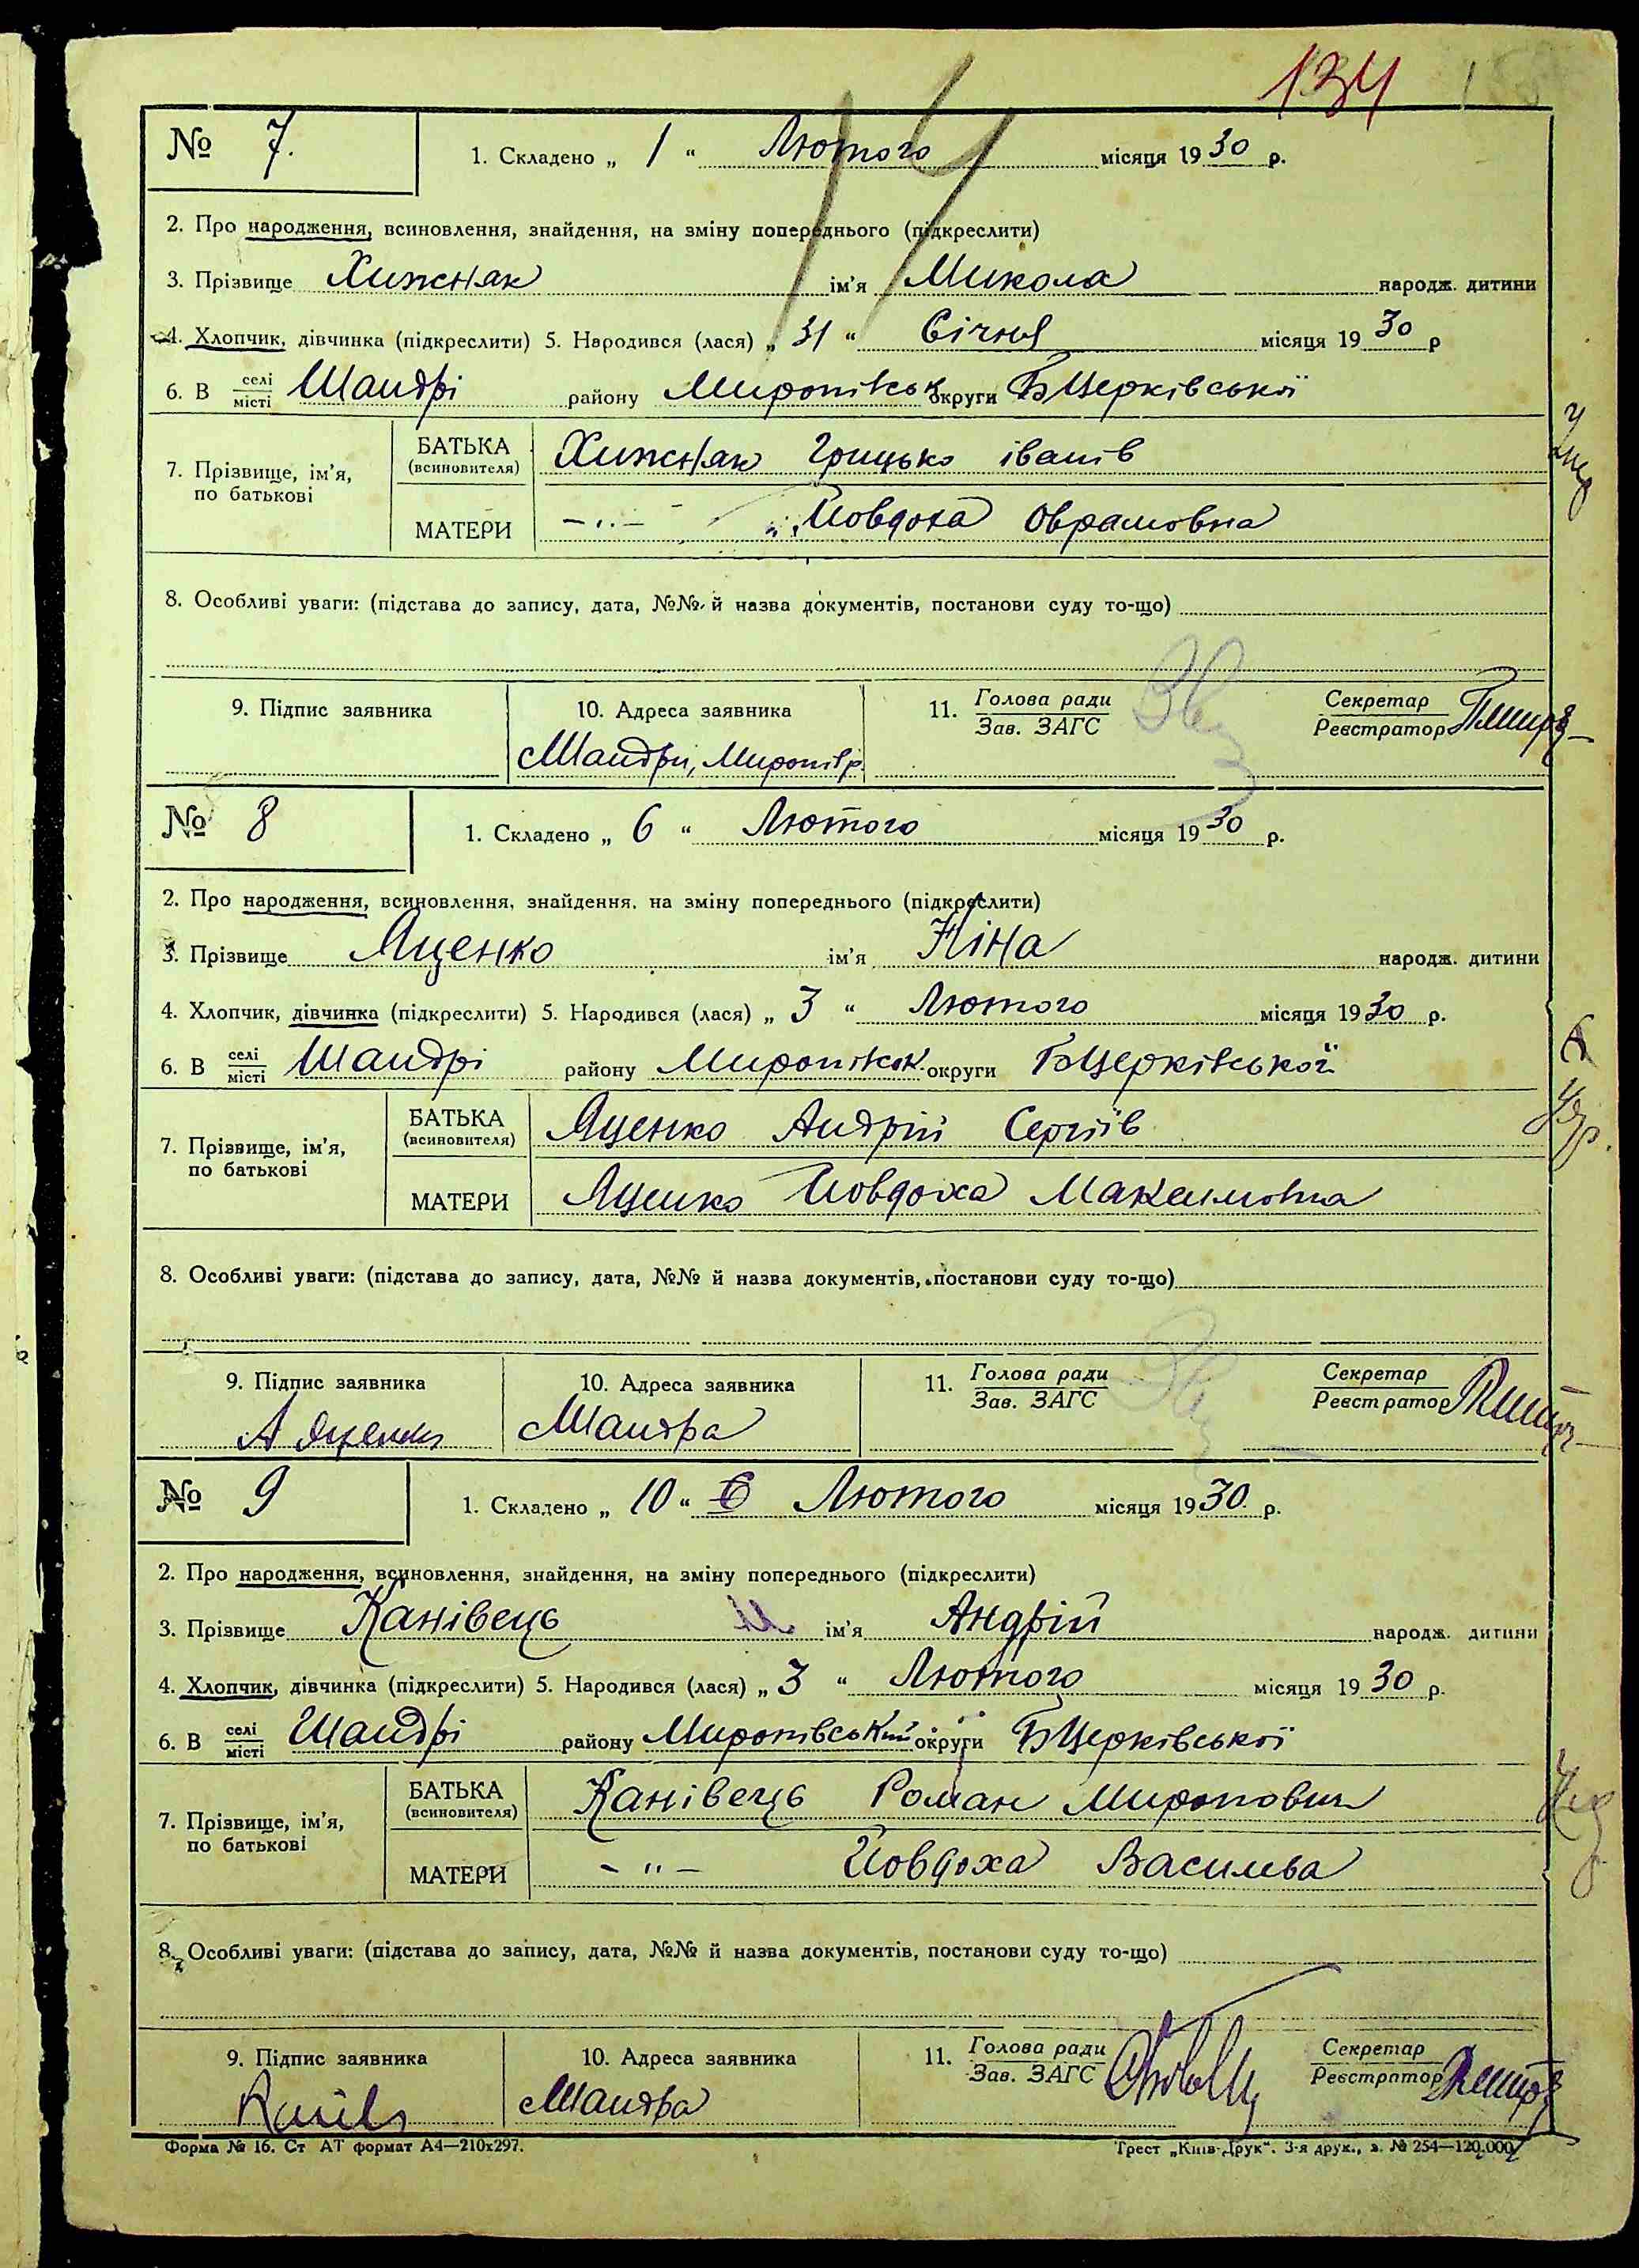 134
№ 7. 1. Складено „ 1 “ Лютого місяця 1930 р.
2. Про народження, всиновлення, знайдення, на зміну попереднього (підкреслити)
3. Прізвище Хижняк ім'я Микола народж. дитини
4. Хлопчик, дівчинка (підкреслити) 5. Народився (лася) „ 31 “ Січня місяця 1930 р
6. В селі/місті Шандрі району Миронівськ округи БЦерківської
7. Прізвище, ім'я, по батькові
БАТЬКА (всиновителя) Хижняк Грицько іванів
МАТЕРИ -„- Йовдоха Оврамовна
8. Особливі уваги: (підстава до запису, дата, №№ й назва документів, постанови суду то-що)
9. Підпис заявника 10. Адреса заявника 11. Голова ради/Зав. ЗАГС Секретар/Реєстратор
Шандри, Миронів р.
№ 8 1. Складено „ 6 “ Лютого місяця 1930 р.
2. Про народження, всиновлення, знайдення, на зміну попереднього (підкреслити)
3. Прізвище Яценко ім'я Ніна народж. дитини
4. Хлопчик, дівчинка (підкреслити) 5. Народився (лася) „ 3 “ Лютого місяця 1930 р.
6. В селі/місті Шандрі району Миронівськ. округи БЦерківської
7. Прізвище, ім'я, по батькові
БАТЬКА (всиновителя) Яценко Андрій Сергіїв
МАТЕРИ Яценко Йовдоха Максимовна
8. Особливі уваги: (підстава до запису, дата, №№ й назва документів, постанови суду то-що)
9. Підпис заявника 10. Адреса заявника 11. Голова ради/Зав. ЗАГС Секретар/Реєстратор
А Яценко Шандра
№ 9 1. Складено „ 10 “ 6 Лютого місяця 1930 р.
2. Про народження, всиновлення, знайдення, на зміну попереднього (підкреслити)
3. Прізвище Канівець ім'я Андрій народж. дитини
4. Хлопчик, дівчинка (підкреслити) 5. Народився (лася) „ 3 “ Лютого місяця 1930 р.
6. В селі/місті Шандрі району Миронівський округи БЦерківської
7. Прізвище, ім'я, по батькові
БАТЬКА (всиновителя) Канівець Роман Миронович
МАТЕРИ -„- Йовдоха Василева
8. Особливі уваги: (підстава до запису, дата, №№ й назва документів, постанови суду то-що)
9. Підпис заявника 10. Адреса заявника 11. Голова ради/Зав. ЗАГС Секретар/Реєстратор
Шандра
Форма № 16. Ст АТ формат А4—210х297. Трест „Київ-Друк“. 3-я друк., з. № 254—120.000